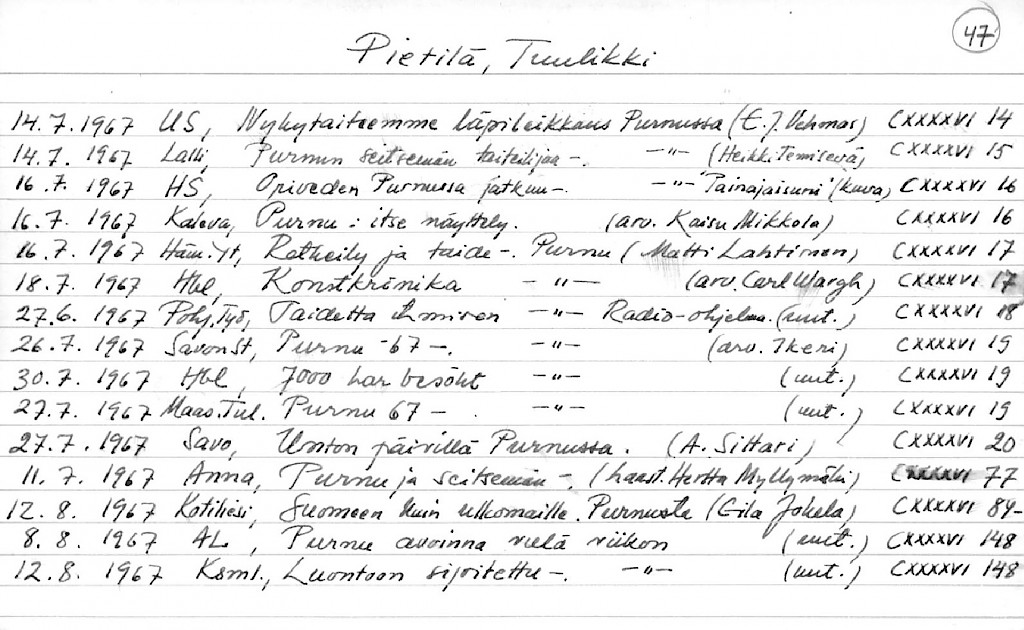 47
Pietilä, Tuulikki
14.7.1967 US, Nykytaiteemme läpileikkaus Purnussa (E.J. Vehmas) CXXXXVI 14
14.7. 1967 Lalli, Purnun seitsemän taiteilijaa -. -"- (Heikki CXXXXVI 15
16.7. 1967 HS, Oriveden Purnussa jatkuu-. -"- "Painajaisuni" (kuva) CXXXXVI 16
16.7. 1967 Kaleva, Purnu : itse näyttely. (arv. Kaisu Mikkola) CXXXXVI 16
16.7. 1967 Häm.Yt, Retkeily ja taide-. Purnu (Matti Lahtinen) CXXXXVI 17
18.7. 1967 Hbl, Konstkrönika -"- (arv. Carl Wargh) CXXXXVI 17
27.6. 1967 Pohj.Työ, Taidetta ihmisen -"- Radio-ohjelma. (uut.) CXXXXVI 18
26.7. 1967 SavonSt, Purnu -67 -. -"- (arv. Ikeri) CXXXXVI 19
30.7. 1967 Hbl, 7000 har besökt -"- (uut.) CXXXXVI 19
27.7. 1967 Maas.Tul. Purnu 67 - . -"- (uut.) CXXXXVI 19
27.7. 1967 Savo, Unton päivillä Purnussa. (A. Sittari) CXXXXVI 20
11.7. 1967 Anna, Purnu ja seitsemän -. (haast. Hertta Myllymäki) CXXXXVI 77
12.8. 1967 Kotiliesi, Suomeen kuin ulkomaille. Purnusta (Eila Jokela) CXXXXVI 84-
8.8. 1967 AL, Purnu avoinna vielä viikon (uut.) CXXXXVI 148
12.8. 1967 Ksml., Luontoon sijoitettu -. -"- (uut.) CXXXXVI 148